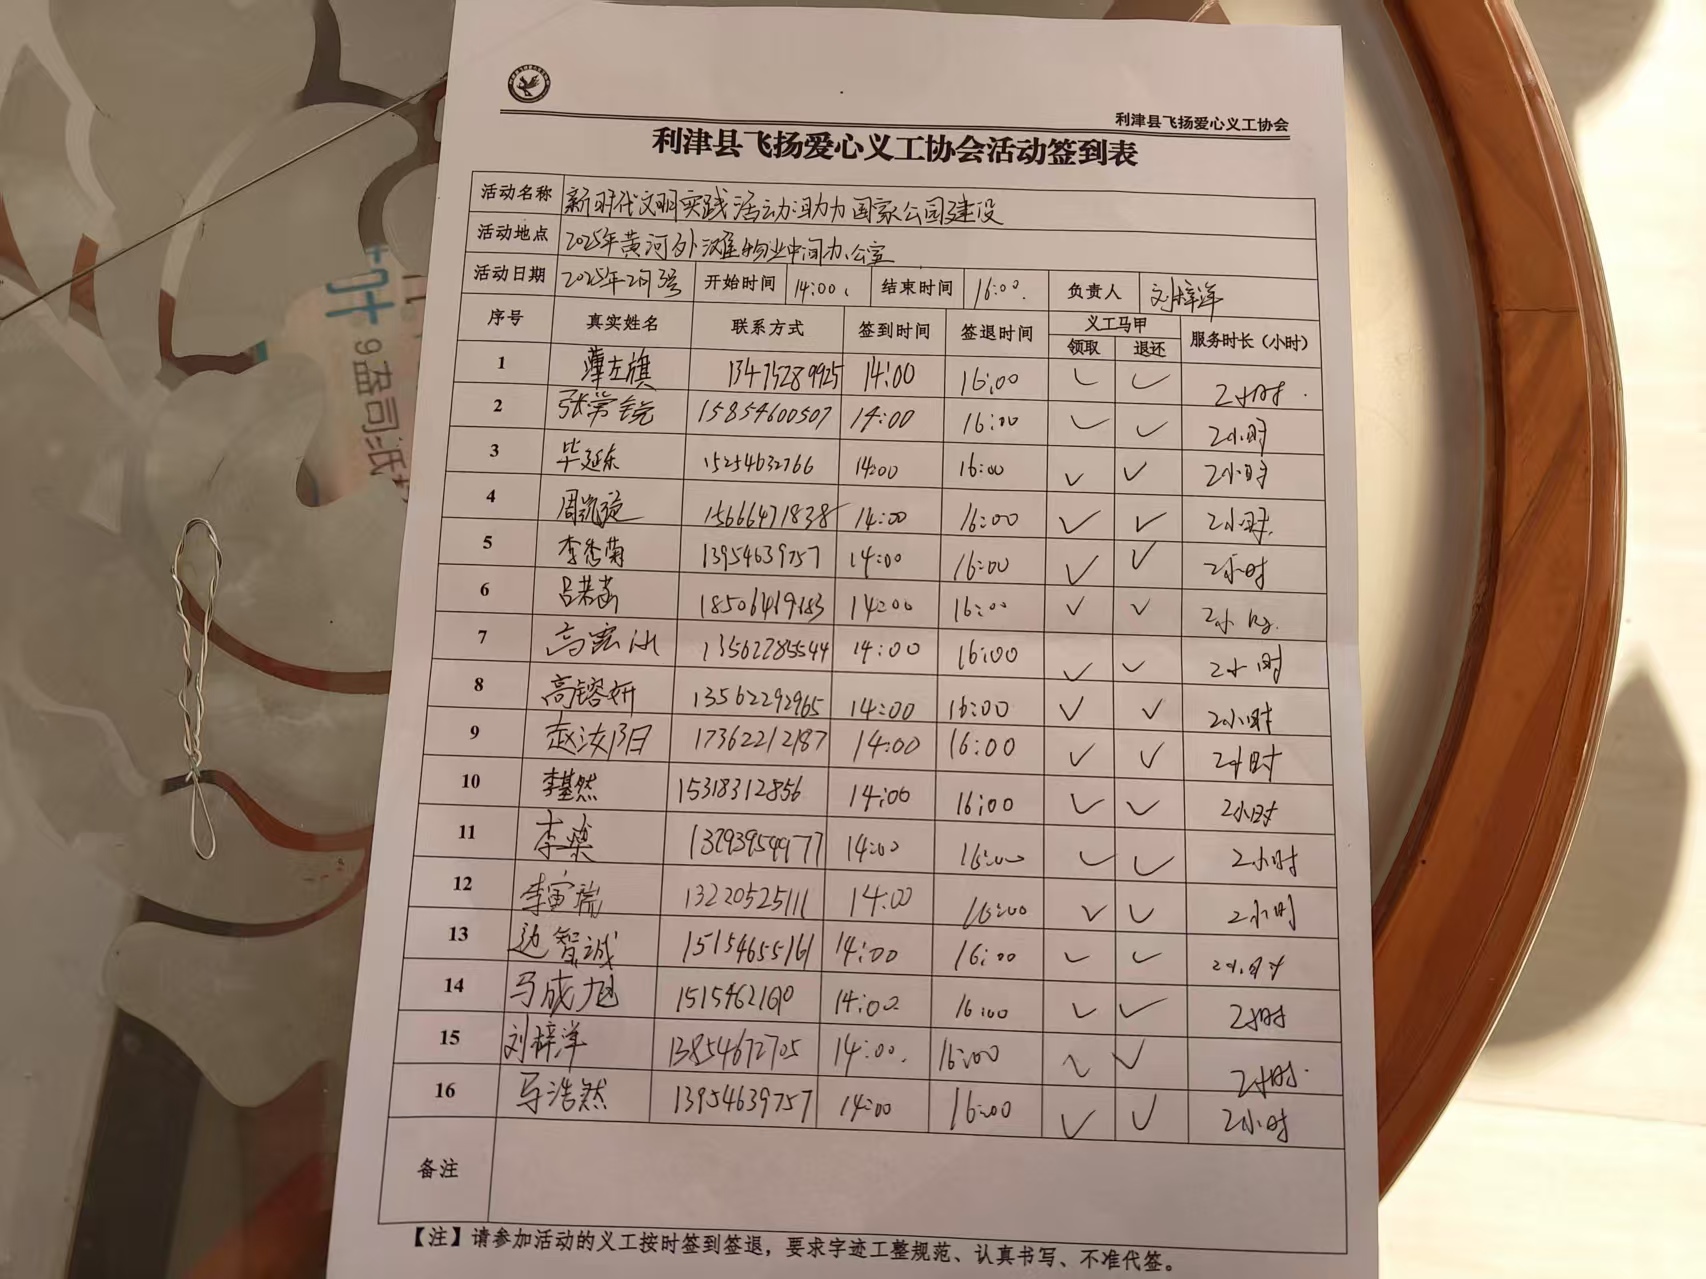 利津县飞扬爱心义工协会
利津县飞扬爱心义工协会活动签到表
活动名称 新时代文明实践活动:助力国家公园建设
活动地点 2025年黄河外滩物业中间办公室
活动日期 2025年2月3号 开始时间 14:00. 结束时间 16:00. 负责人 刘梓洋
序号 真实姓名 联系方式 签到时间 签退时间 义工马甲 服务时长（小时）
领取 退还
1 薄左旗 13475289925 14:00 16:00 ✓ ✓ 2小时.
2 张常锐 15854600507 14:00 16:00 ✓ ✓ 2小时
3 毕延东 15254632766 14:00 16:00 ✓ ✓ 2小时
4 周凯旋 15666471838 14:00 16:00 ✓ ✓ 2小时.
5 李秀菊 13954639757 14:00 16:00 ✓ ✓ 2小时
6 吕若菡 14:00 16:00 ✓ ✓ 2小时.
7 高宏冰 13562285544 14:00 16:00 ✓ ✓ 2小时
8 高镕妍 13562292965 14:00 16:00 ✓ ✓ 2小时
9 赵汝阳 17362212187 14:00 16:00 ✓ ✓ 2小时
10 李基然 15318312856 14:00 16:00 ✓ ✓ 2小时
11 李燊 14:00 16:00 ✓ ✓ 2小时
12 李寅瑞 13220525111 14:00 16:00 ✓ ✓ 2小时
13 边智诚 15154655161 14:00 16:00 ✓ ✓ 2小时
14 马成旭 14:00 16:00 ✓ ✓ 2小时
15 刘梓洋 13854672705 14:00. 16:00 ✓ ✓ 2小时.
16 马浩然 13954639757 14:00 16:00 ✓ ✓ 2小时
备注
【注】请参加活动的义工按时签到签退，要求字迹工整规范、认真书写、不准代签。
9盘司泜